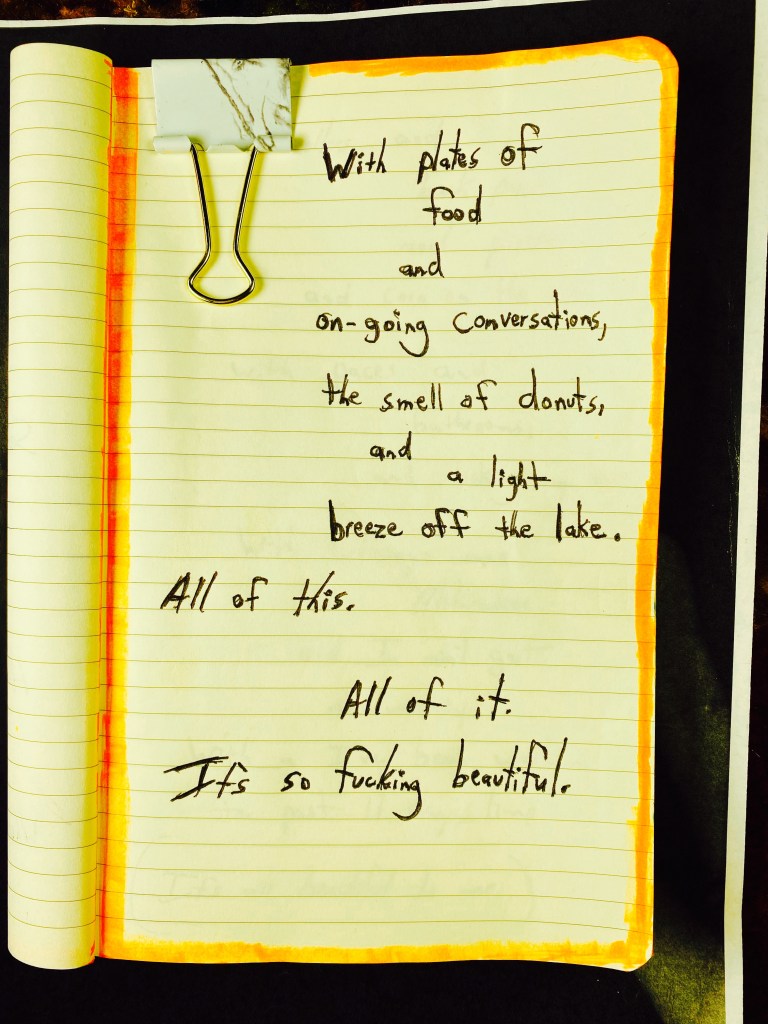 With plates of
food
and
on-going conversations,
the smell of donuts,
and
a light
breeze off the lake.
All of this.
All of it.
It's so fucking beautiful.